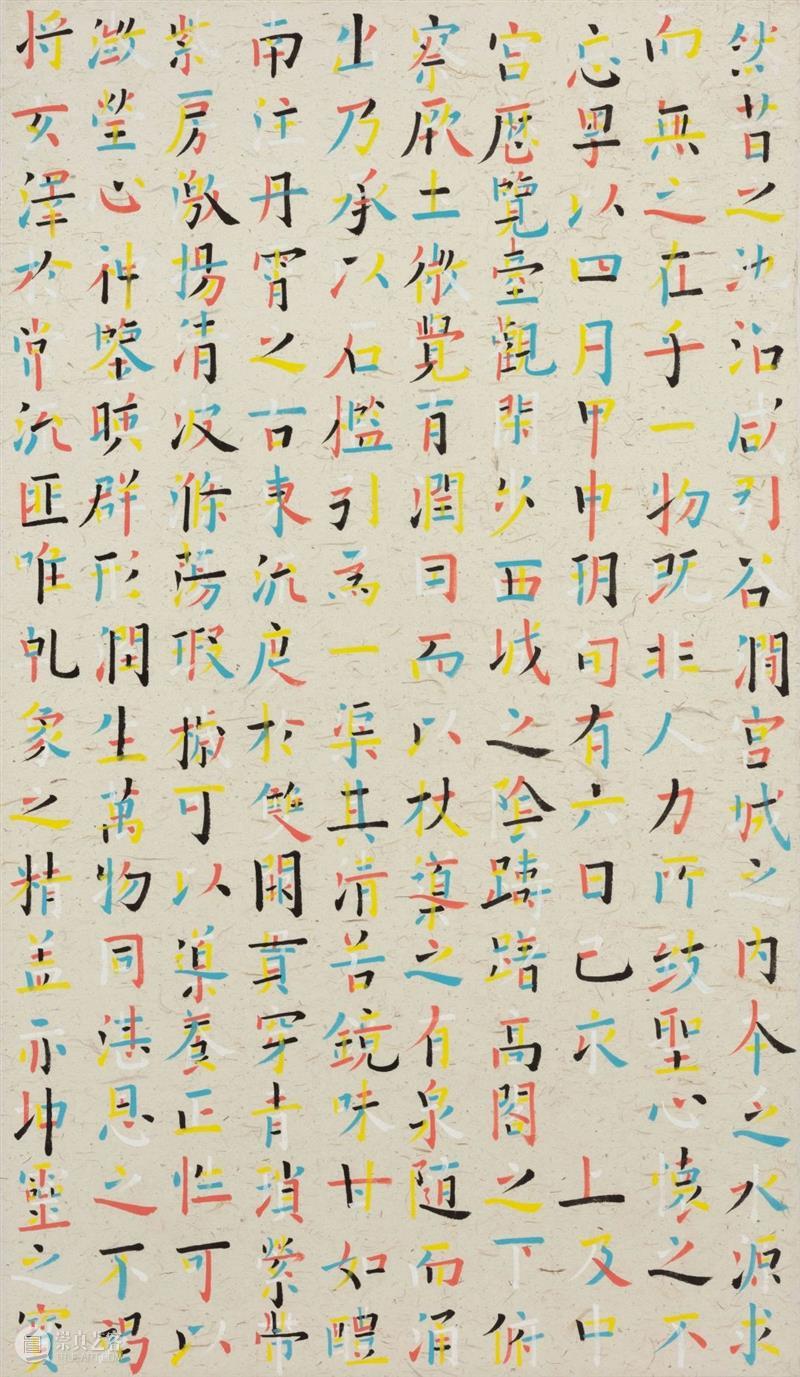 然昔之池沼咸引谷澗宮城之内本乏水源求
而無之在乎一物既非人力所致聖心懷之不
忘粤以四月甲申朔旬有六日己亥 上及中
宮歷覽臺觀閑步西城之陰躊躇高閣之下俯
察厥土微覺有潤因而以杖導之有泉随而涌
出乃承以石檻引為一渠其清若鏡味甘如醴
南注丹霄之右東流度於雙闕貫穿青瑣縈帶
紫房激揚清波滌蕩瑕穢可以導養正性可以
澂瑩心神鑒映群形潤生萬物同湛恩之不竭
將玄澤於常流匪唯乹象之精蓋亦坤靈之寶
崇真艺客